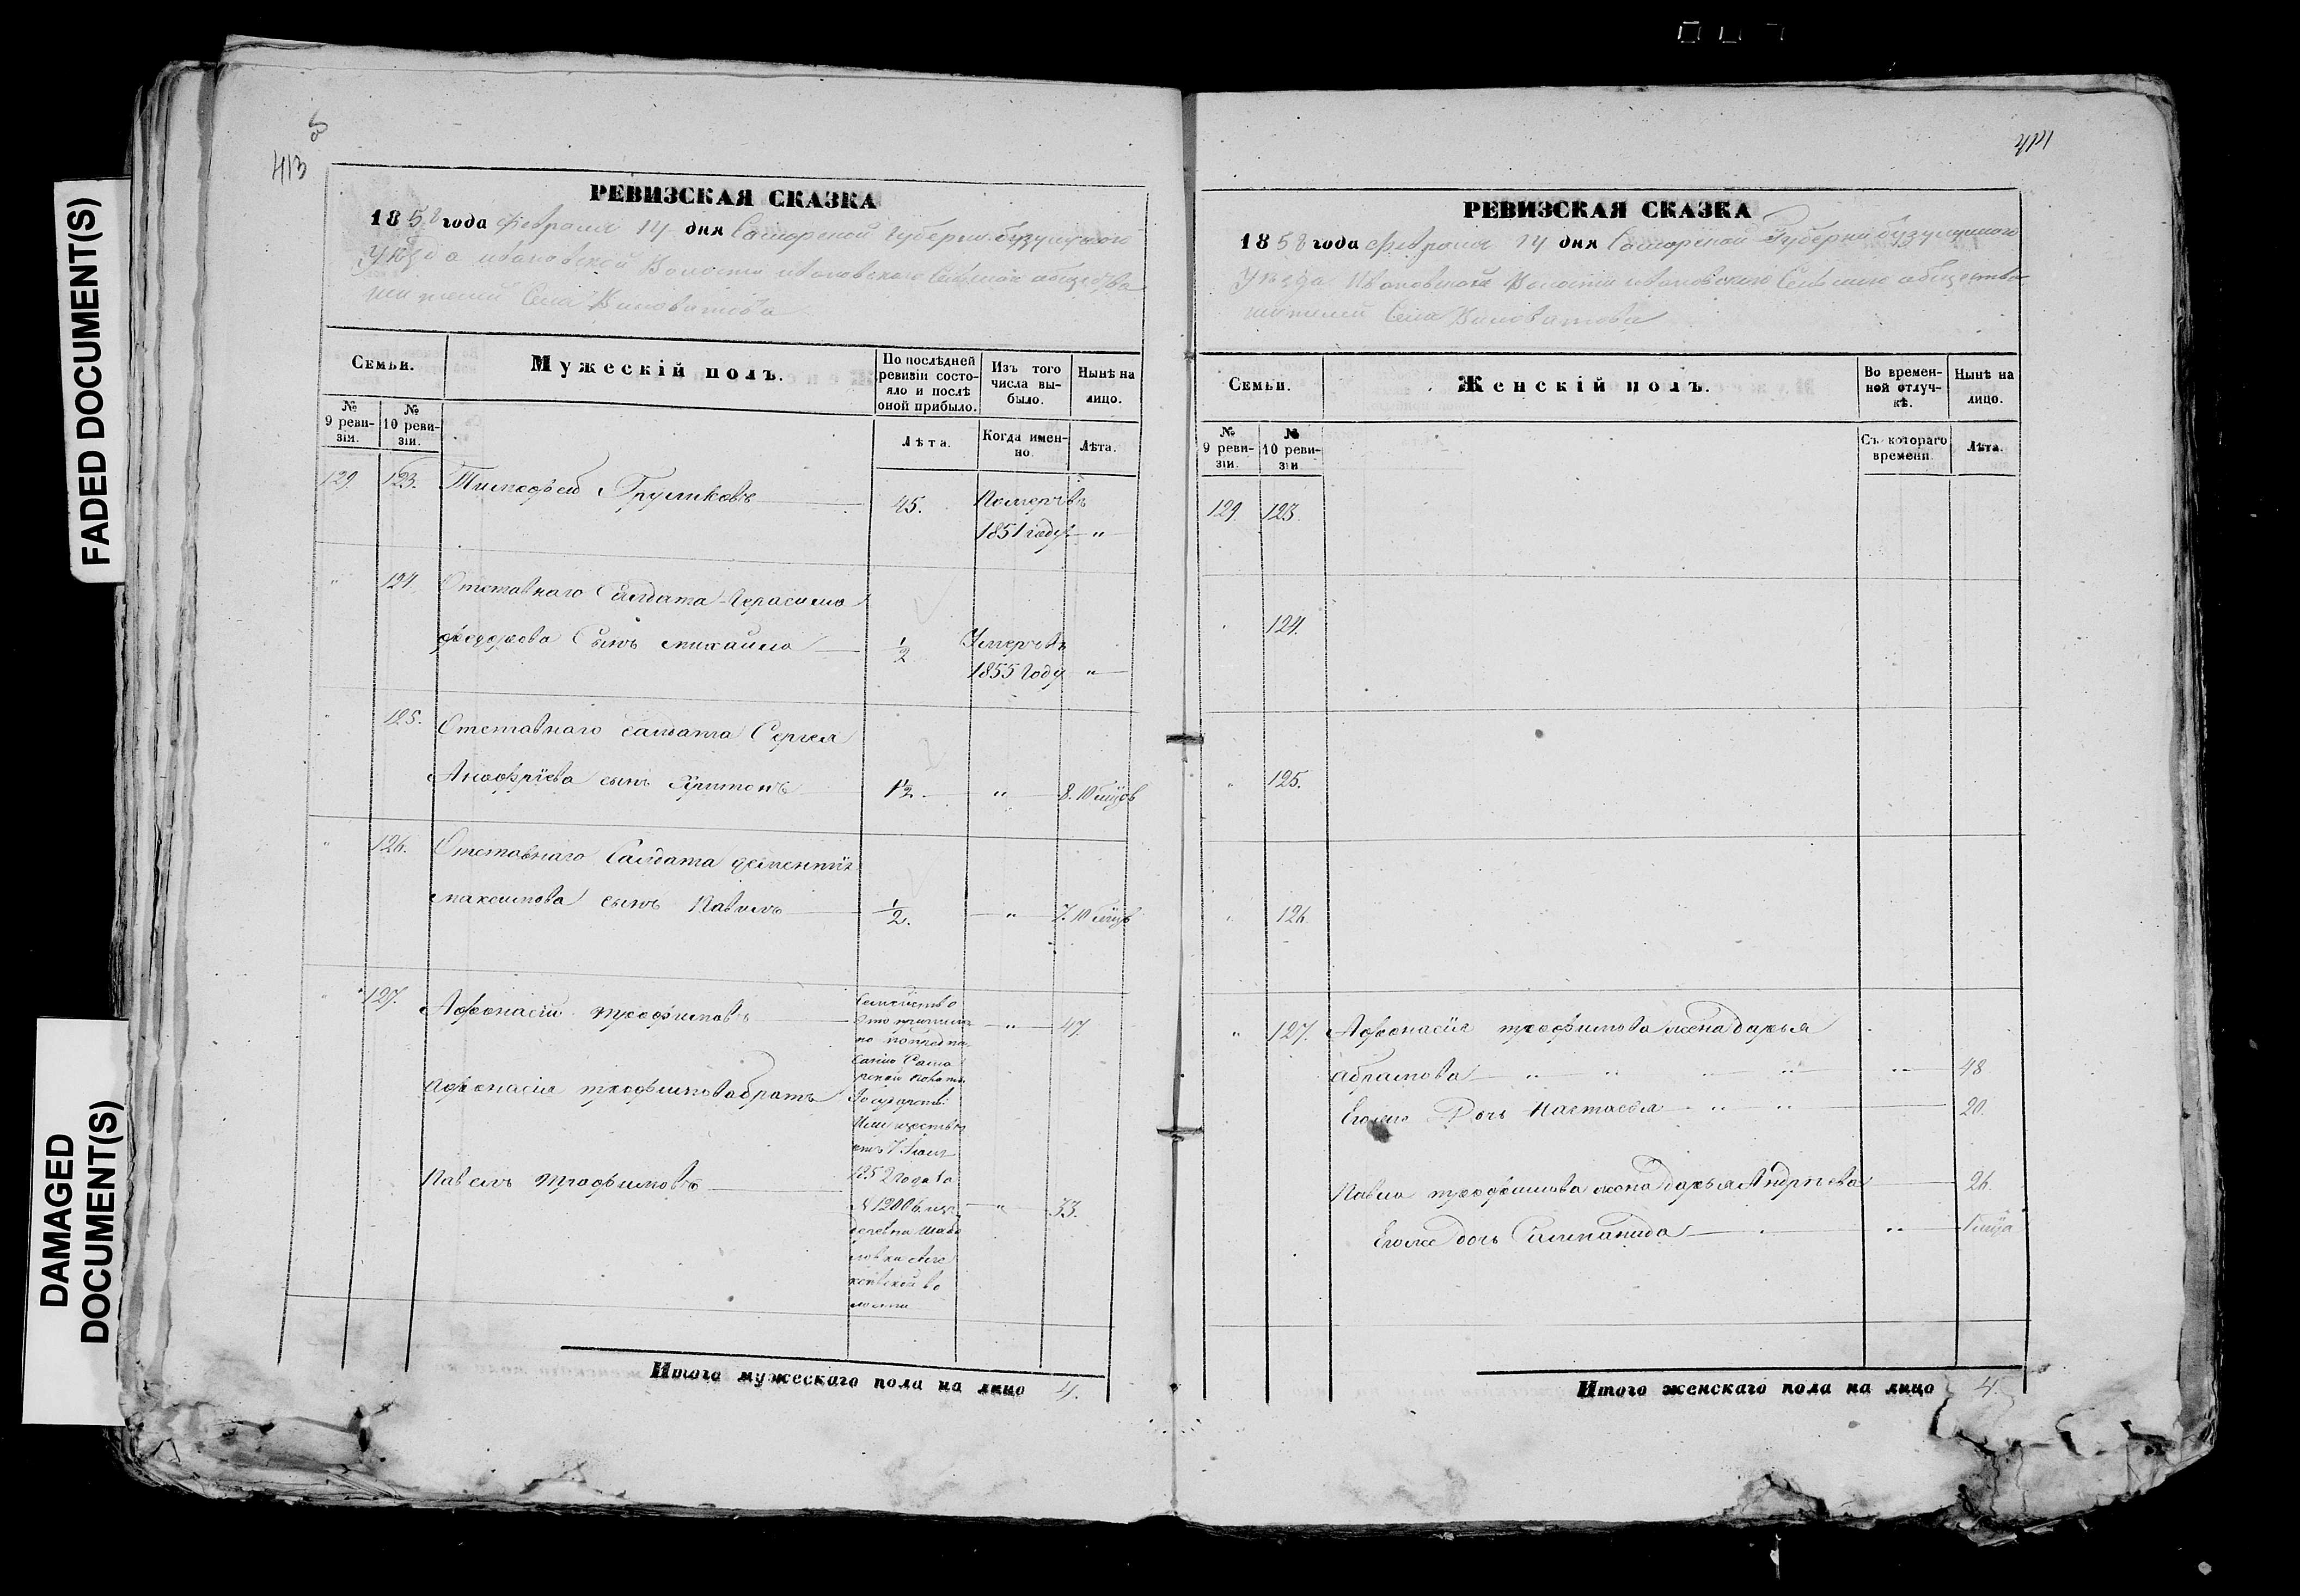 FADED DOCUMENT(S)
DAMAGED
DOCUMENT(S)
413
РЕВИЗСКАЯ СКАЗКА
1858 года Февраля 14 дня Самарской Губерніи бузулуцкаго
Уѣзда ивановской Волости ивановскаго Сельскаго общества
жителей Села Виловатова
Семьи.
Мужескій полъ.
По послѣдней ревизіи состояло и послѣ оной прибыло.
Изъ того числа выбыло.
Нынѣ на лицо.
№ 9 ревизіи.
№ 10 ревизіи.
Лѣта.
Когда именно.
Лѣта.
129. 123. Тимофей 45. Померъ въ
1851 году "
" 124. Отставнаго Салдата Герасима
федорова Сынъ михаила 1/2 Умеръ въ
1855 Году "
" 125. Отставнаго салдата Сергея
Анофріева сынъ Харитонъ 1/2 " 8. 10 мѣцов
" 126. Отставнаго Салдата дементія
максимова сынъ Павелъ 1/2. " 7. 10 мѣцов
" 127. Афонасій трофимовъ " 47
Афонасія трофимова братъ
Павелъ трофимовъ " 33.
Семейство
это
по
Сама
рской палаты
Государств:
Имуществъ
отъ 7
1852 года за
№ 12006. из
деревни
волости
Итого мужескаго пола на лицо 4.
414
РЕВИЗСКАЯ СКАЗКА
1858 года февраля 14 дня Самарской Губерніи бузулуцкаго
Уѣзда Ивановской Волости ивановскаго Сельскаго общества
жителей Села Виловатова
Семьи.
Женскій полъ.
Во временной отлучкѣ.
Нынѣ на лицо.
№ 9 ревизіи.
№ 10 ревизіи.
Съ котораго времени.
Лѣта.
129. 123.
124.
" 125.
" 126
" 127. Афонасія трофимова жена дарья
абрамова " " " " " 48
Егоже Дочь Настасья " " 20.
Павла трофимова жена дарья Андрѣева 26
Егоже дочь " "
Итого женскаго пола на лицо 4.